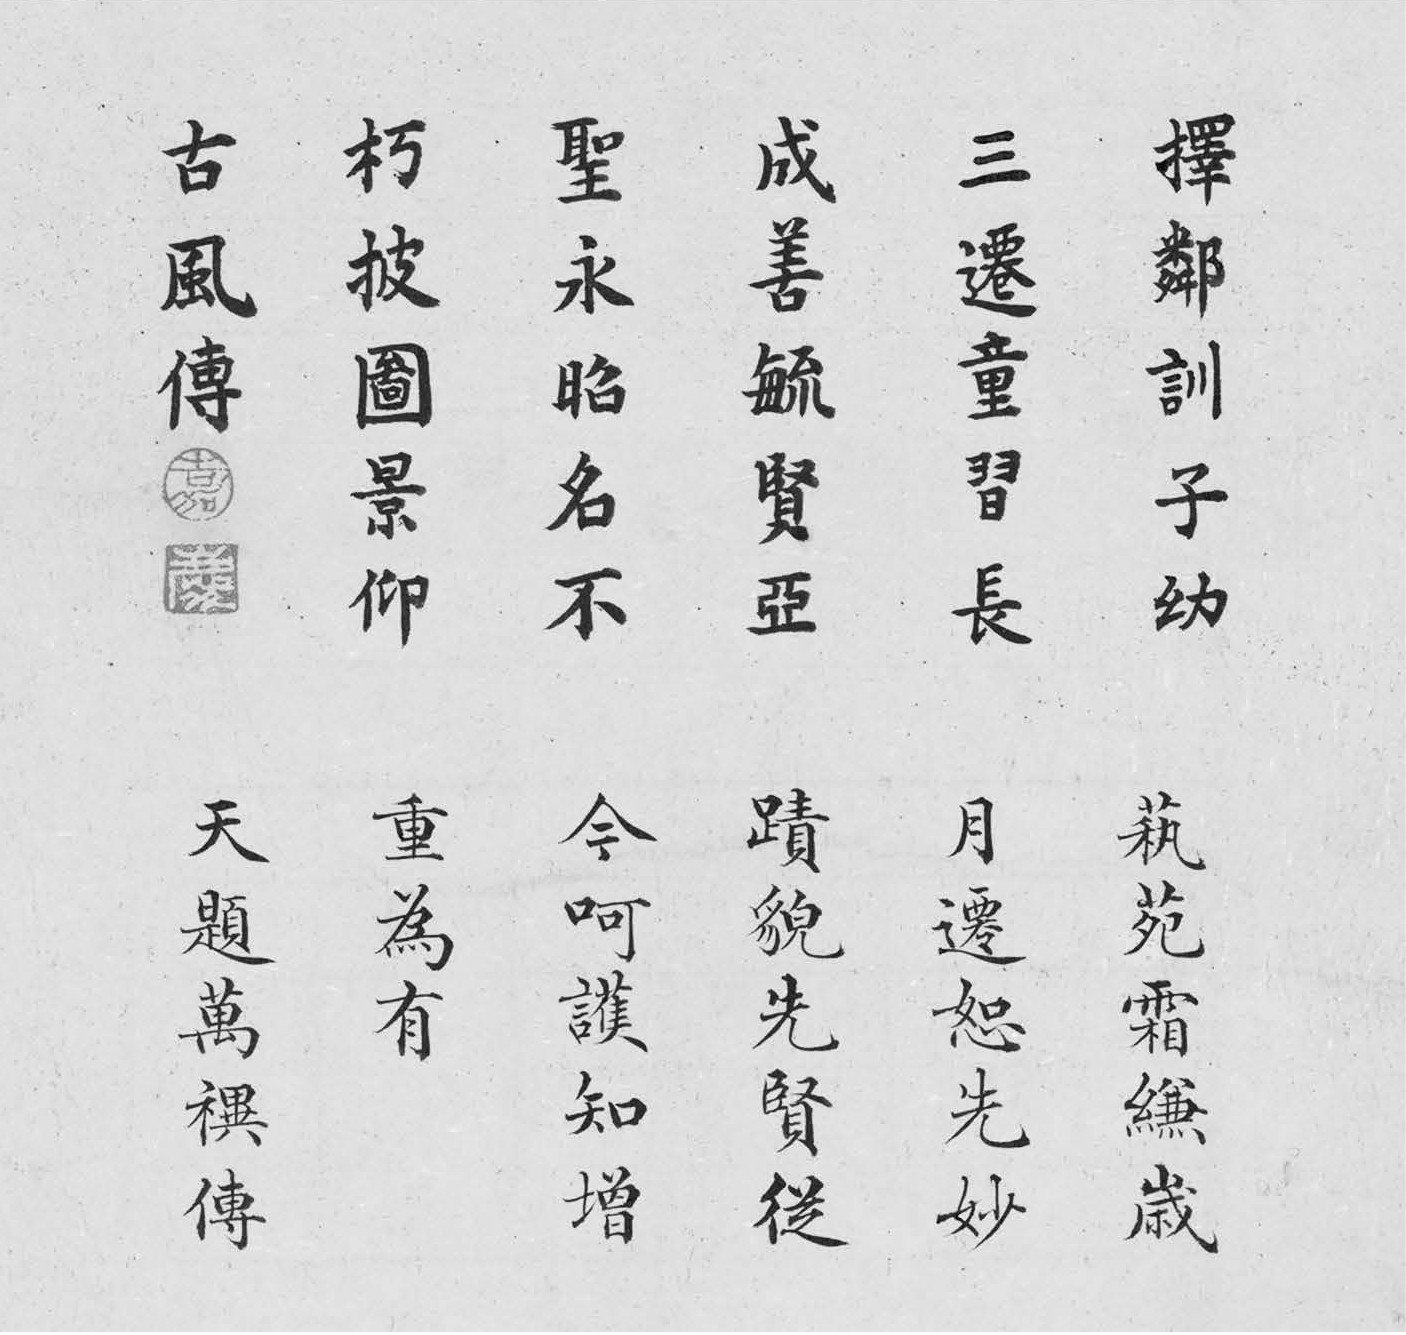 擇鄰訓子幼
三遷童習長
成善毓賢亞
聖永昭名不
朽披圖景仰
古風傳
嘉
慶
萟苑霜縑歲
月遷恕先妙
蹟貌先賢從
今呵護知增
重為有
天題萬禩傳